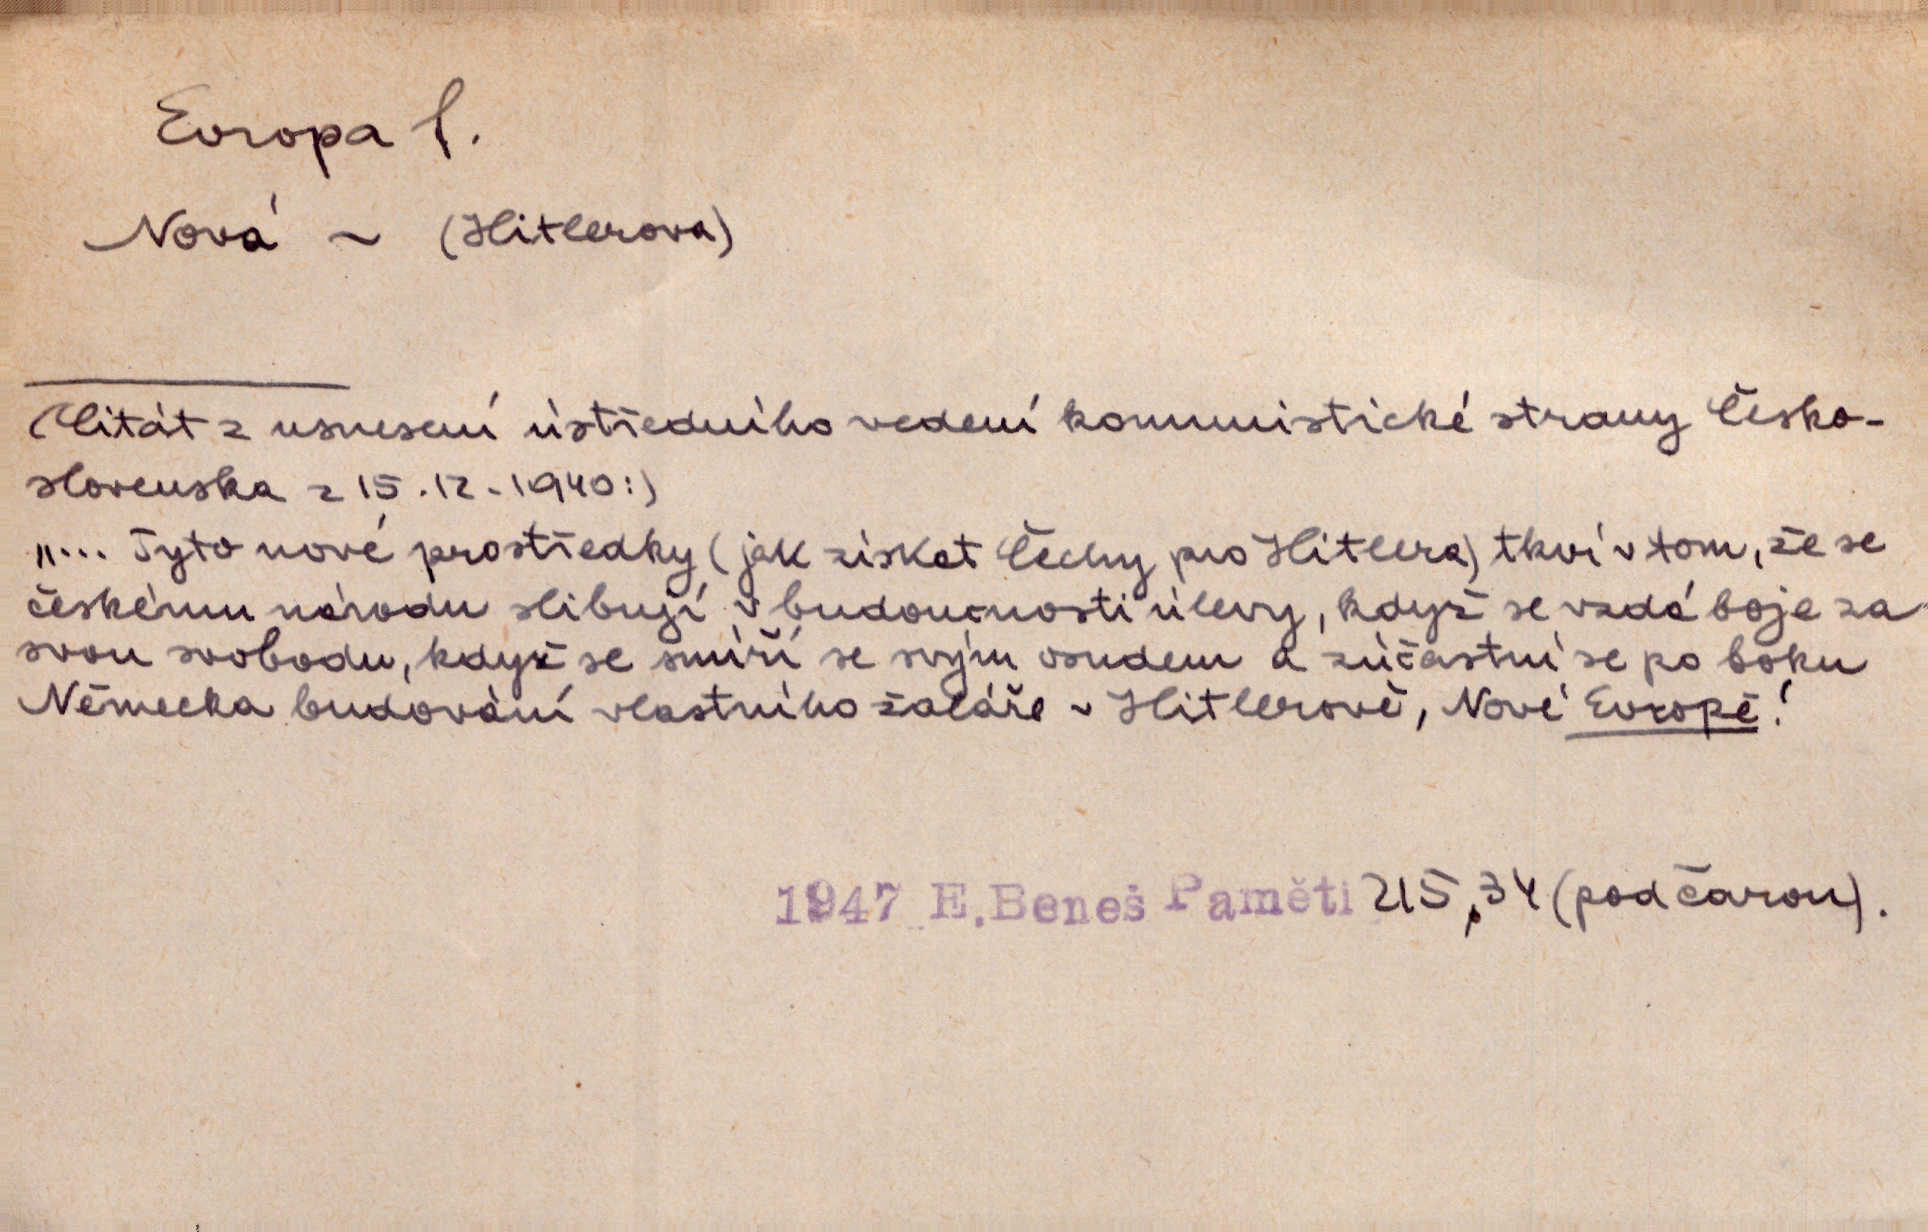 Evropa f.
Nová ~ (Hitlerova)
(Citát z usnesení ústředního vedení komunistické strany Česko-
slovenska z 15.12.1940:)
„... Tyto nové prostředky (jak získat Čechy pro Hitlera) tkví v tom, že se
českému národu slibují v budoucnosti úlevy, když se vzdá boje za
svou svobodu, když se smíří se svým osudem a zúčastní se po boku
Německa budování vlastního žaláře v Hitlerově, Nové Evropě!
1947 E.Beneš Paměti 215,34 (pod čarou).